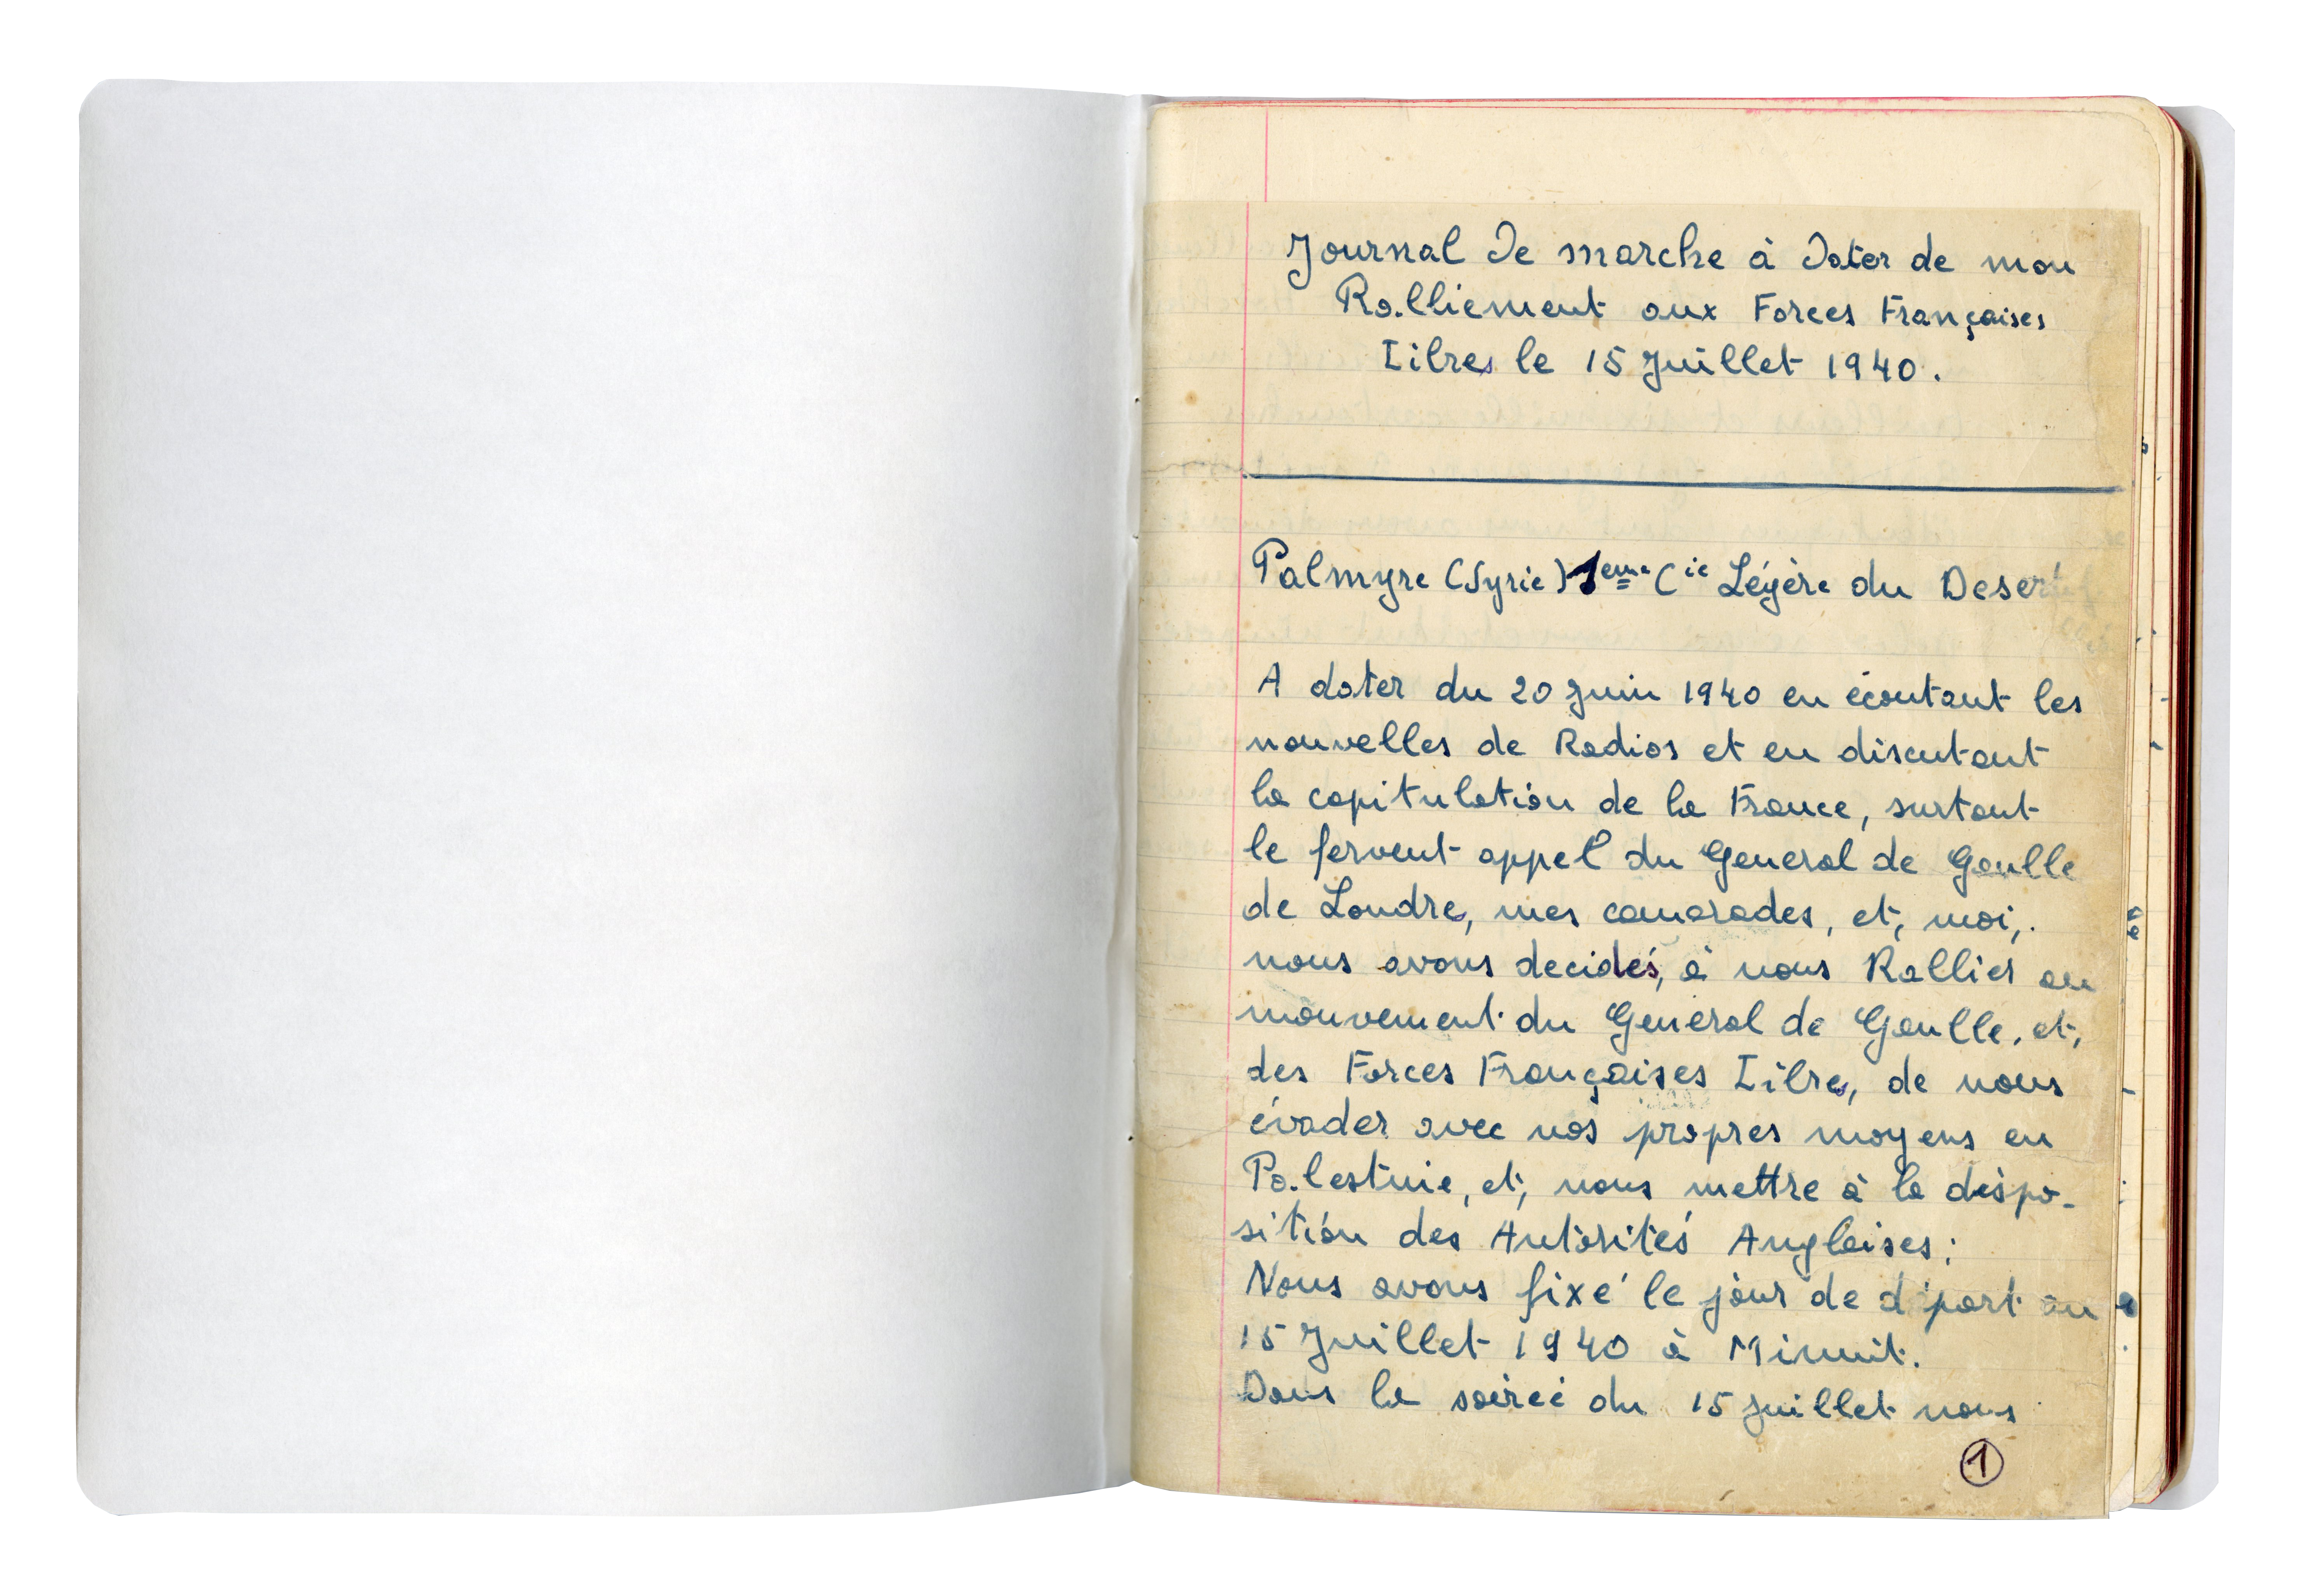 Journal de marche à dater de mon
Ralliement aux Forces Françaises
Libres le 15 Juillet 1940.
Palmyre (Syrie) 1eme Cie Légère du Desert
A dater du 20 Juin 1940 en écoutant les
nouvelles de Radios et en discutant
la capitulation de la France, surtout
le fervent appel du General de Gaulle
de Londre, mes camarades, et, moi,.
nous avons decidés, à nous Rallier au
mouvement du General de Gaulle, et,
des Forces Françaises Libre, de nous
évader avec nos propres moyens en
Palestine, et, nous mettre à la dispo-
sition des Autorités Anglaises;
Nous avons fixé le jour de départ au
15 Juillet 1940 à Minuit.
Dans la soirée du 15 Juillet nous
1